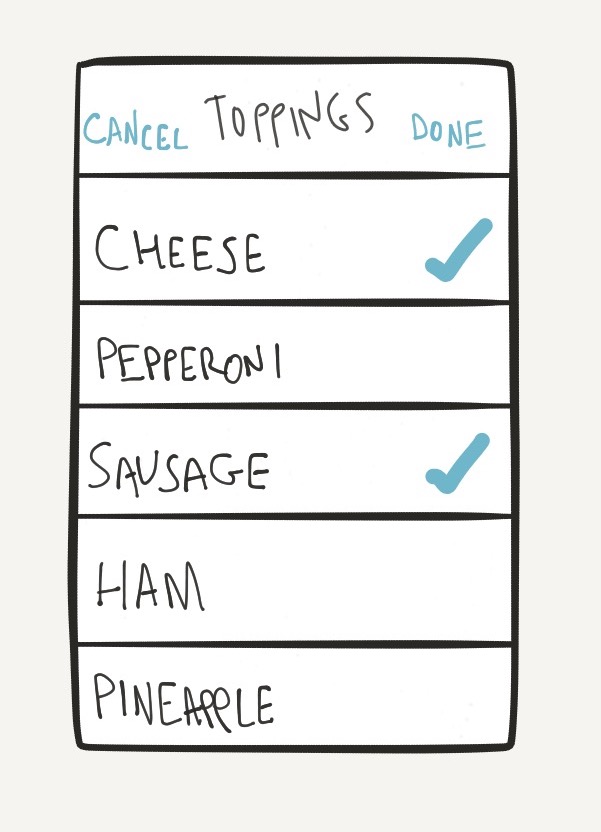 CANCEL TOPPINGS DONE
CHEESE
PEPPERONI
SAUSAGE
HAM
PINEAPPLE